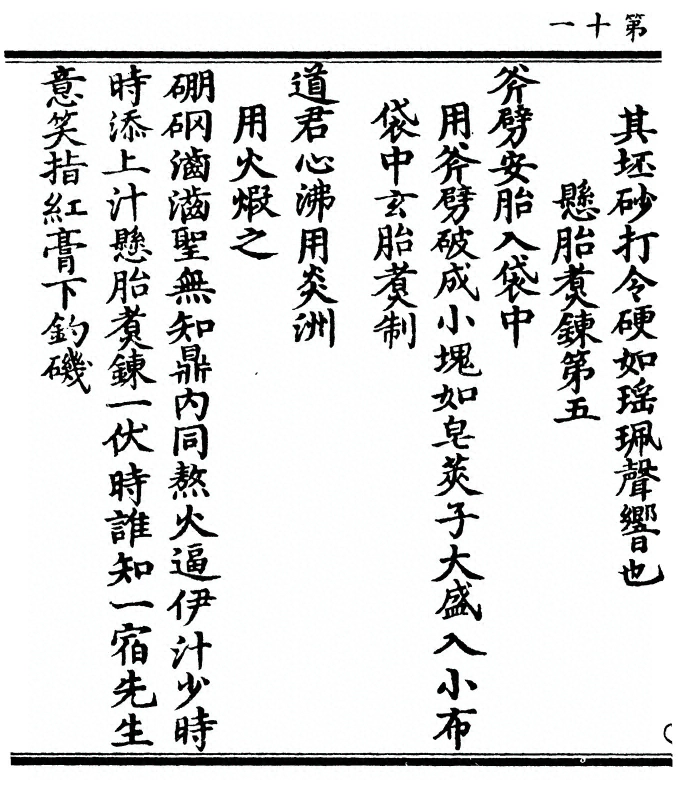 第十一
其坯砂打令硬如瑶珮聲響也
懸胎煑鍊第五
斧劈安胎入袋中
用斧劈破成小塊如皂莢子大盛入小布
袋中玄胎煑制
道君心沸用炎洲
用火煆之
硼砜滷滷聖無知鼎内同熬火逼伊汁少時
時添上汁懸胎煑鍊一伏時誰知一宿先生
意笑指紅膏下釣磯